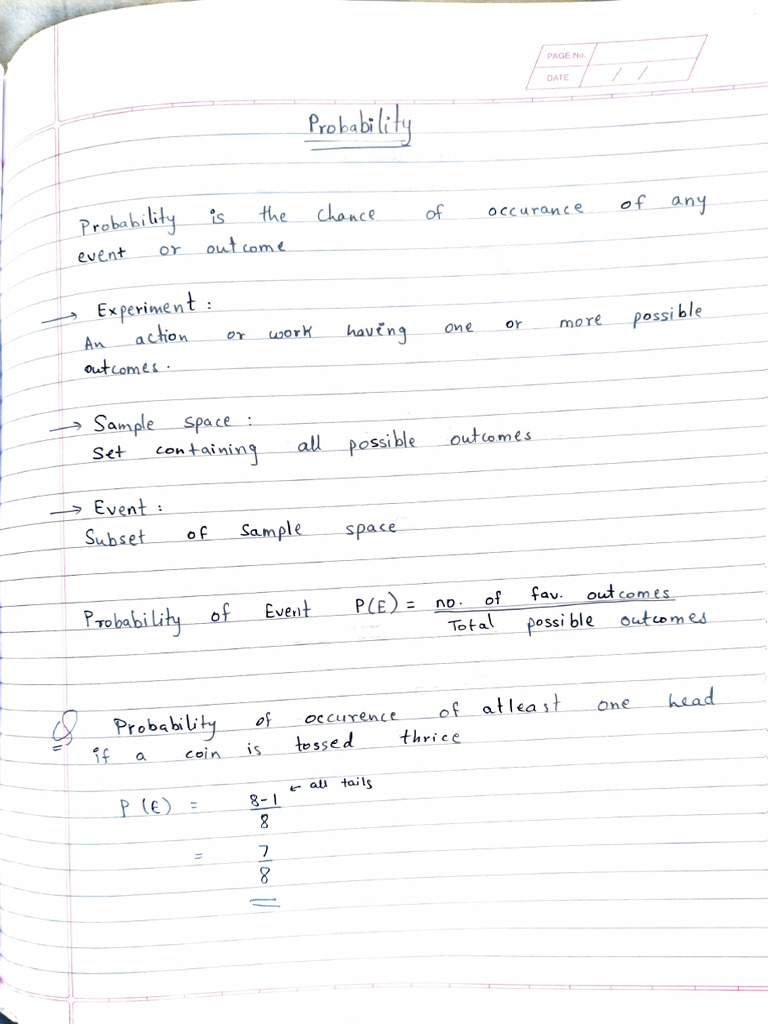 PAGE No.
DATE / /
Probability
Probability is the chance of occurance of any
event or outcome
→ Experiment :
An action or work having one or more possible
outcomes.
→ Sample space :
Set containing all possible outcomes
→ Event :
Subset of Sample space
Probability of Event P(E) = no. of fav. outcomes
Total possible outcomes
Q Probability of occurence of atleast one head
if a coin is tossed thrice
P(E) = 8-1 ← all tails
8
= 7
8